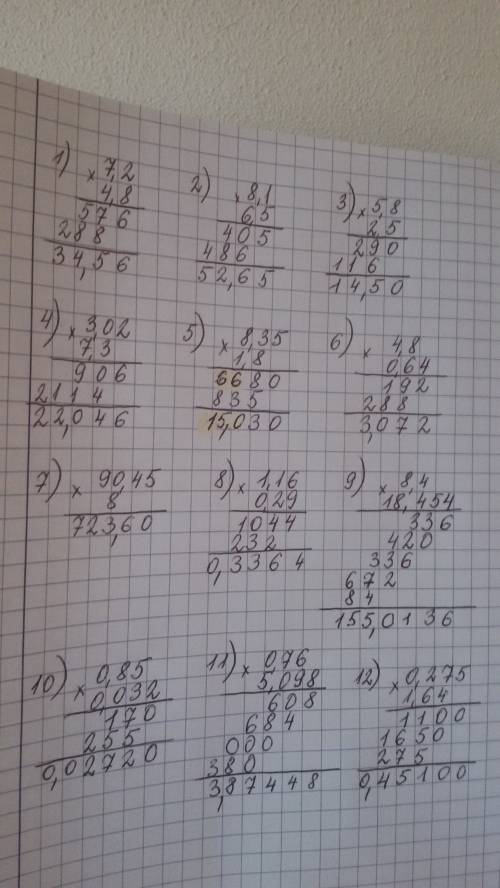 1) × 7,2
4,8
576
288
34,56
2) × 8,1
6,5
405
486
52,65
3) × 5,8
2,5
290
116
14,50
4) × 302
7,3
906
2114
22,046
5) × 8,35
1,8
6680
835
15,030
6) × 4,8
0,64
192
288
3,072
7) × 90,45
8
723,60
8) × 1,16
0,29
1044
232
0,3364
9) × 8,4
18,454
336
420
336
672
84
155,0136
10) × 0,85
0,032
170
255
0,02720
11) × 0,76
5,098
608
684
000
380
3,87448
12) × 0,275
1,64
1100
1650
275
0,45100